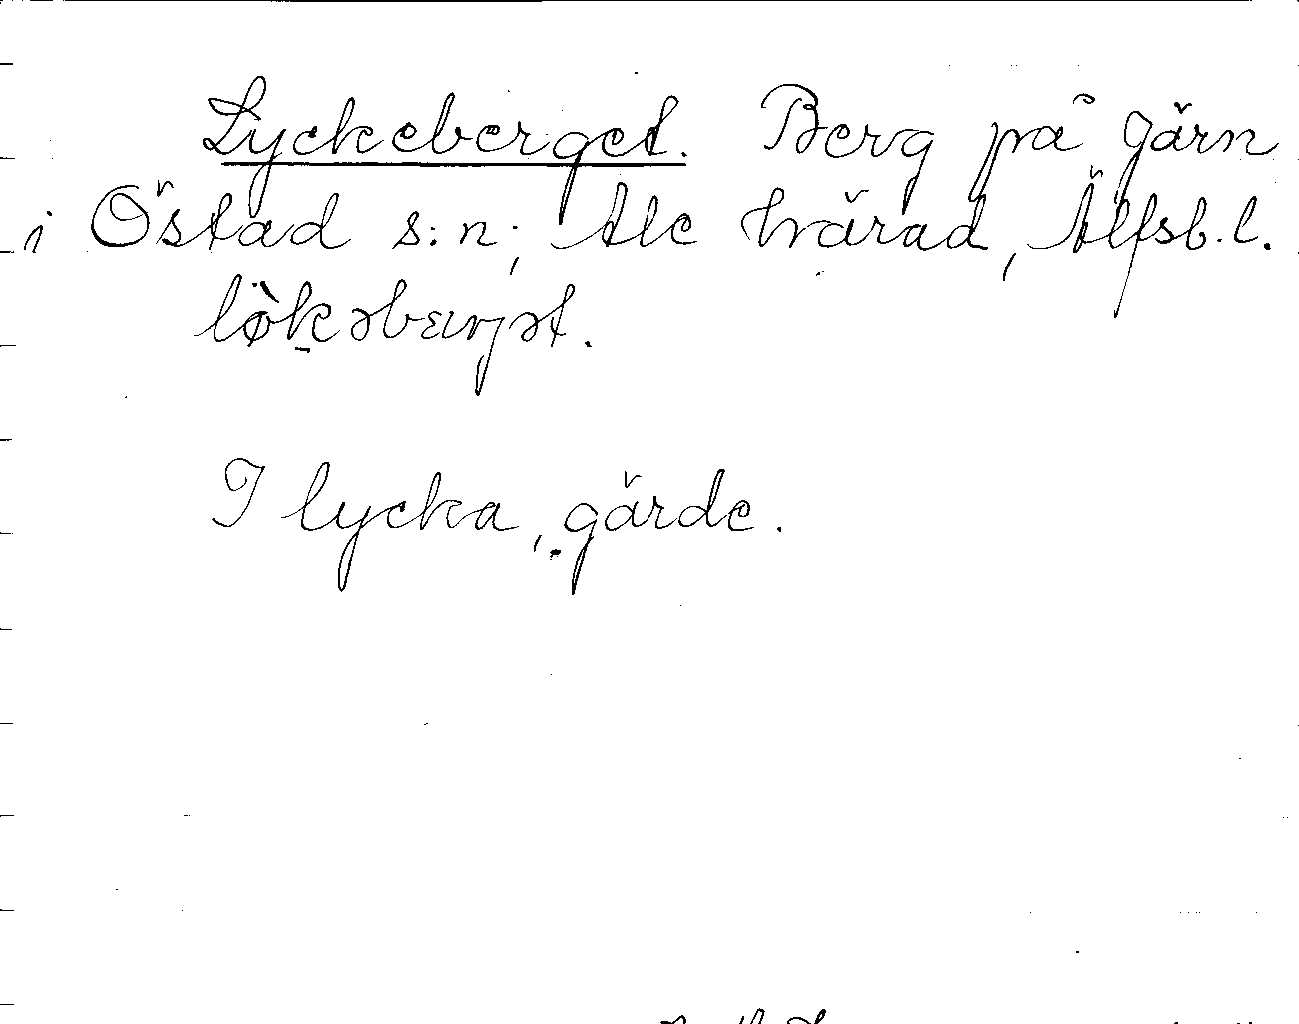 Lyckeberget. Berg på Gärn
i Östad s:n, Ale härad, Älfsb.l.
lø̀kəbærjət.
I lycka, gärde.